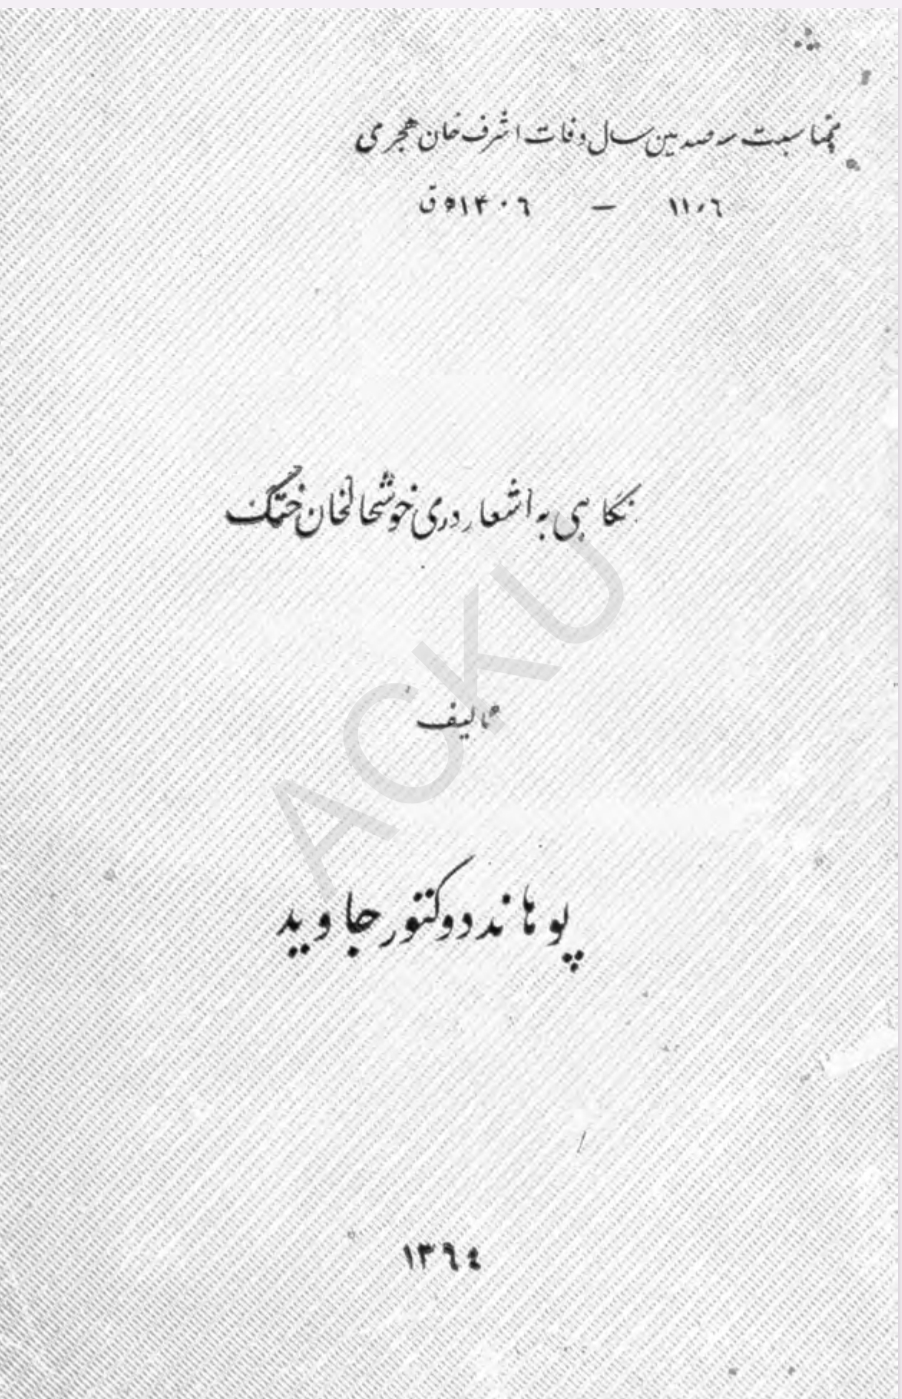 بمناسبت سه صدمین سال وفات اشرف خان هجری
۱۱۰۶ – ۱۴۰۶ ه ق
نگاهی به اشعار دری خوشحالخان خټک
تالیف
پوهاند دوکتور جاوید
۱۳۶۴
ACKU